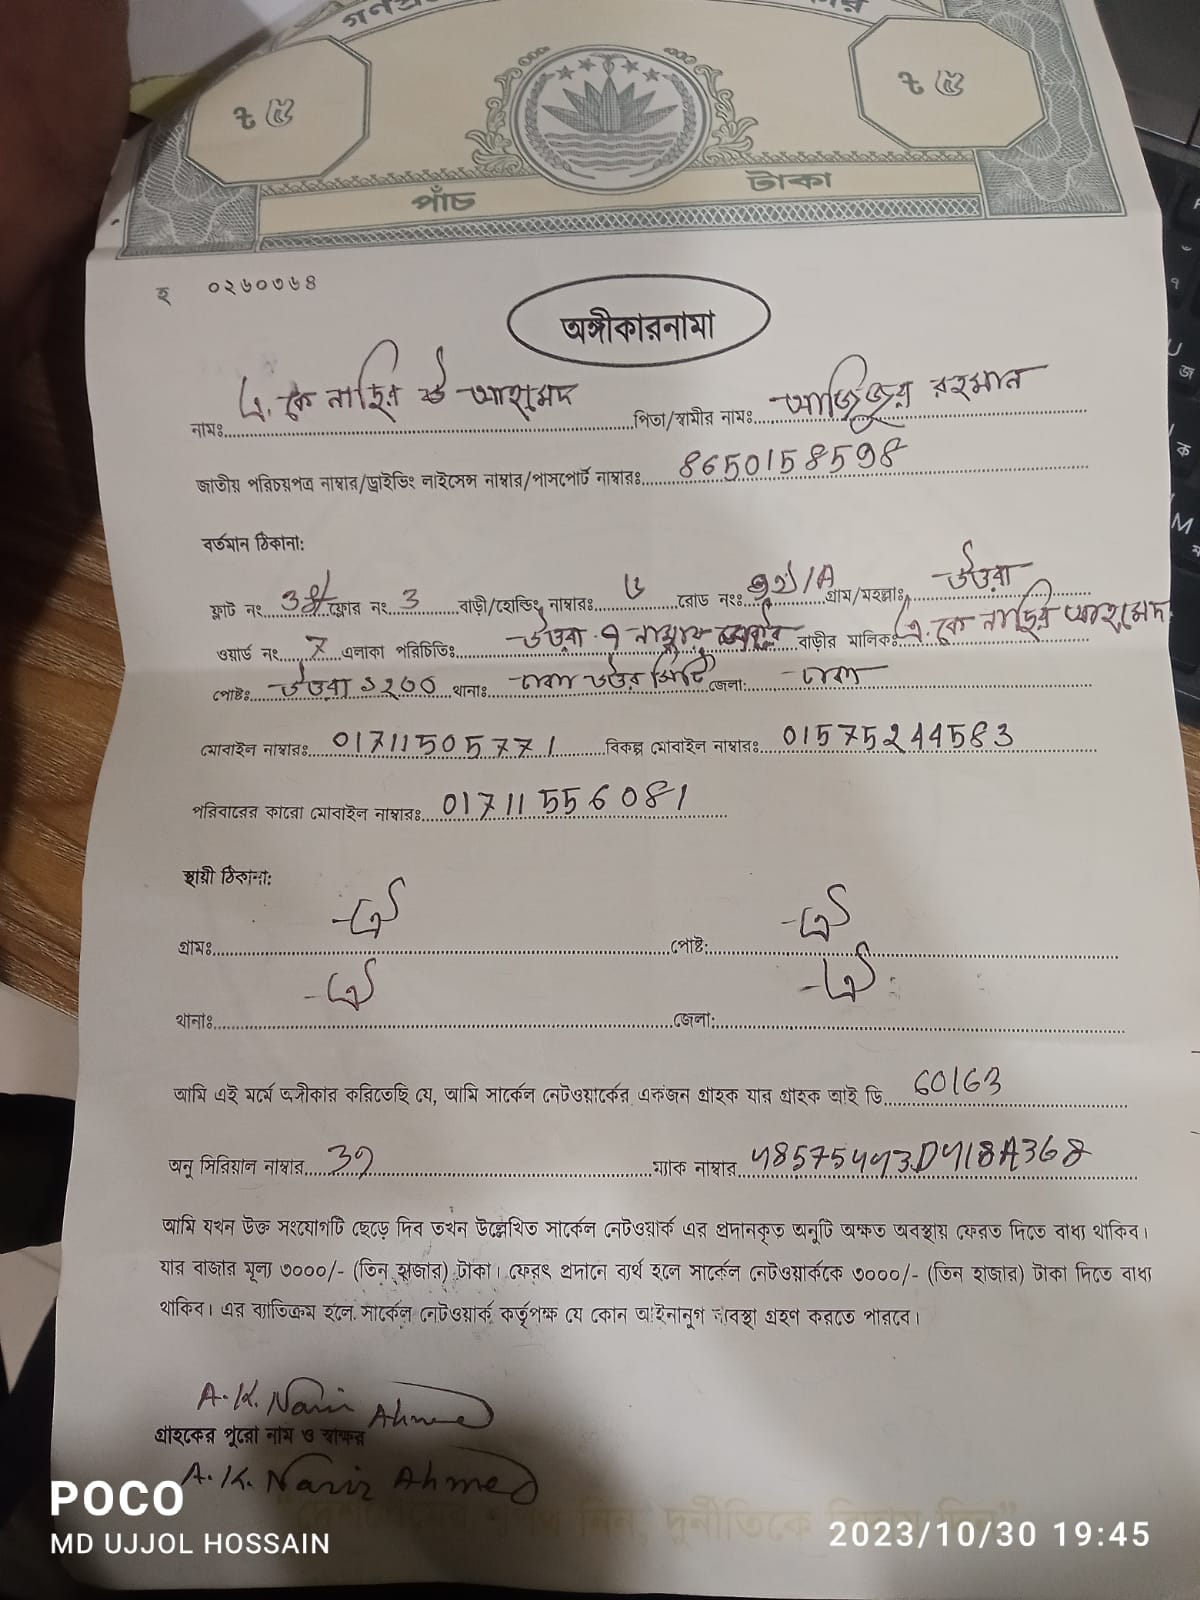 ৳ ৫
৳ ৫
পাঁচ টাকা
হ ০২৬০৩৬৪
অঙ্গীকারনামা
নামঃ এ. কে নাছির আহমেদ পিতা/স্বামীর নামঃ আজিজুর রহমান
জাতীয় পরিচয়পত্র নাম্বার/ড্রাইভিং লাইসেন্স নাম্বার/পাসপোর্ট নাম্বারঃ 8650158598
বর্তমান ঠিকানা:
ফ্লাট নং ফ্লোর নং. 3 বাড়ী/হোল্ডিং নাম্বারঃ রোড নংঃ গ্রাম/মহল্লাঃ উত্তরা
ওয়ার্ড নং. 7 এলাকা পরিচিতিঃ উত্তরা বাড়ীর মালিকঃ এ. কে নাছির আহমেদ
পোষ্টঃ উত্তরা ১২৩০ থানাঃ ঢাকা উত্তর সিটি জেলা: ঢাকা
মোবাইল নাম্বারঃ 01711505771 বিকল্প মোবাইল নাম্বারঃ 01575244583
পরিবারের কারো মোবাইল নাম্বারঃ 01711556081
স্থায়ী ঠিকানা:
গ্রামঃ -ঐ পোষ্ট: -ঐ
থানাঃ -ঐ জেলা: -ঐ
আমি এই মর্মে অঙ্গীকার করিতেছি যে, আমি সার্কেল নেটওয়ার্কের একজন গ্রাহক যার গ্রাহক আই ডি 60163
অনু সিরিয়াল নাম্বার 39 ম্যাক নাম্বার 48575443D418A368
আমি যখন উক্ত সংযোগটি ছেড়ে দিব তখন উল্লেখিত সার্কেল নেটওয়ার্ক এর প্রদানকৃত অনুটি অক্ষত অবস্থায় ফেরত দিতে বাধ্য থাকিব।
যার বাজার মূল্য ৩০০০/- (তিন হাজার) টাকা। ফেরৎ প্রদানে ব্যর্থ হলে সার্কেল নেটওয়ার্ককে ৩০০০/- (তিন হাজার) টাকা দিতে বাধ্য
থাকিব। এর ব্যতিক্রম হলে সার্কেল নেটওয়ার্ক কর্তৃপক্ষ যে কোন আইনানুগ ব্যবস্থা গ্রহণ করতে পারবে।
A. K. Nasir Ahmed
গ্রাহকের পুরো নাম ও স্বাক্ষর
A. K. Nasir Ahmed
নিন, দুর্নীতিকে
POCO
MD UJJOL HOSSAIN
2023/10/30 19:45